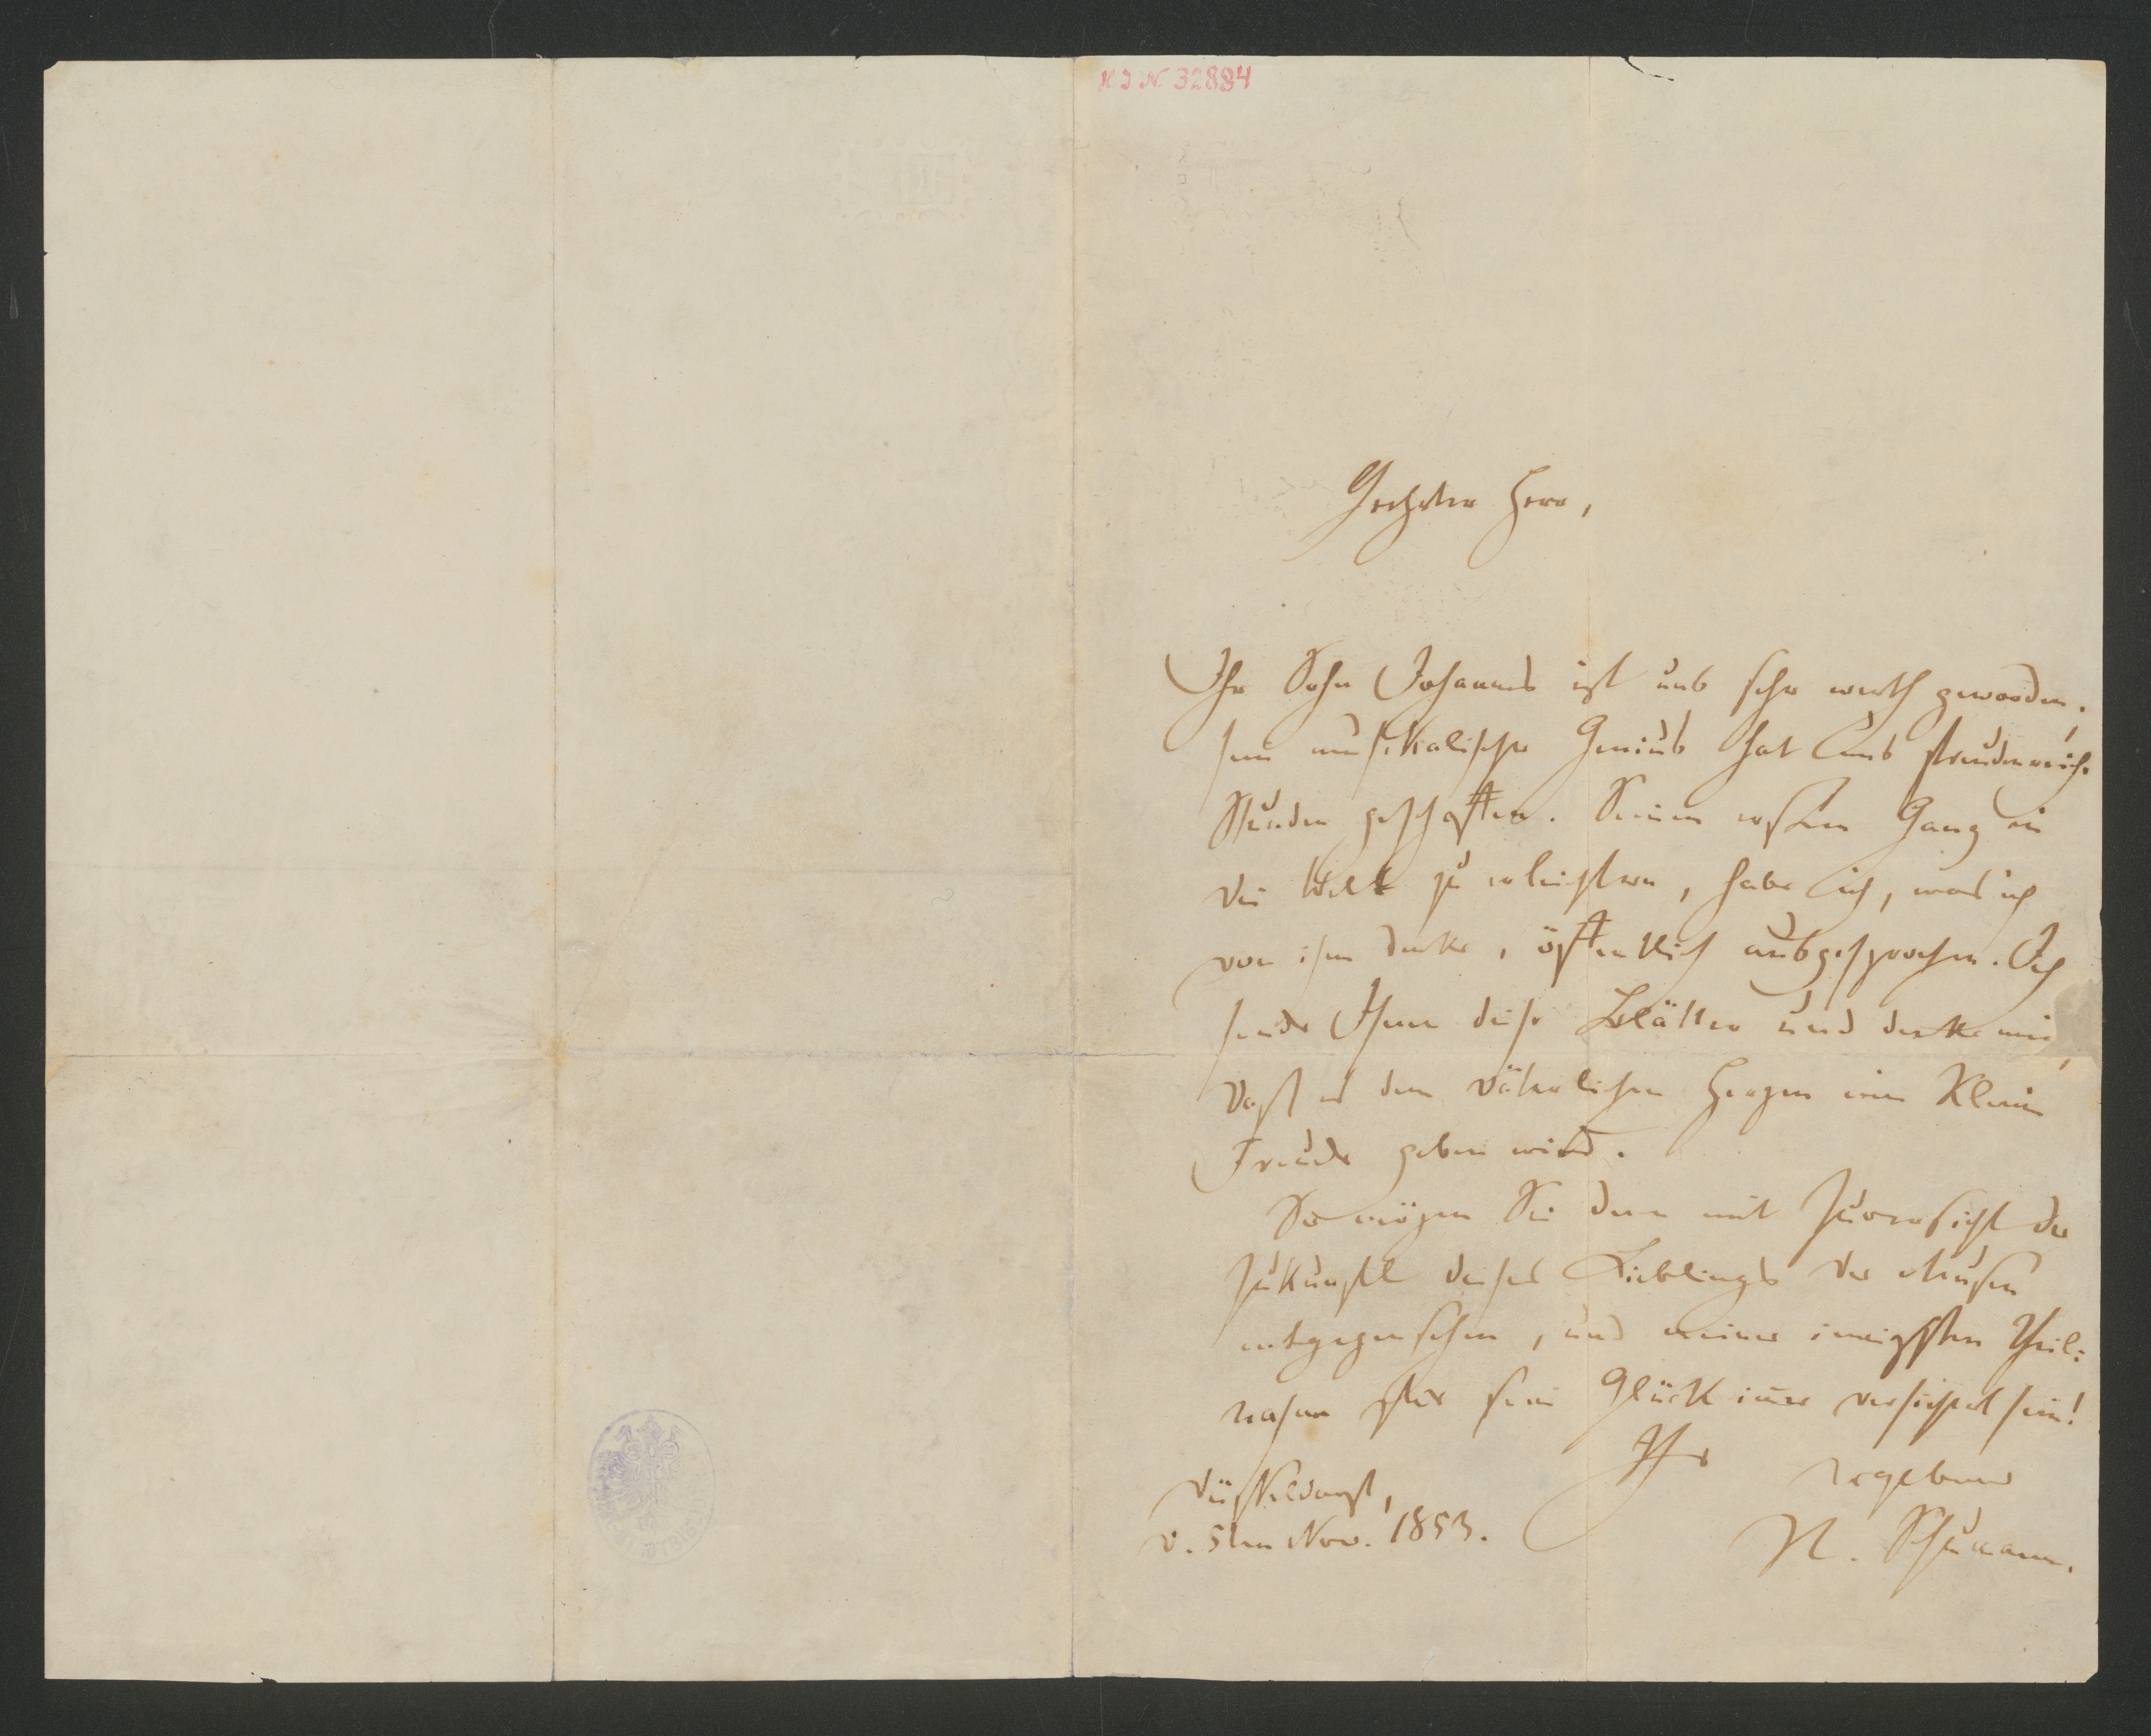 H I N 32884
Geehrter Herr,
Ihr Sohn Johannes ist uns sehr werth geworden,
sein musikalischer Genius hat uns freudenreiche
Stunden geschaffen. Seinen ersten Gang in
die Welt zu erleichtern, habe ich, was ich
von ihm denke, öffentlich ausgesprochen. Ich
sende Ihnen diese Blätter und denke mir,
daß es dem väterlichen Herzen eine kleine
Freude geben wird.
So mögen Sie denn mit Zuversicht der
Zukunft dieses Lieblings der Musen
entgegensehen, und meiner innigsten Theil:
nahme für sein Glück im̄er versichert sein!
Ihr ergebener
Düsseldorf,
d. 5ten Nov. 1853.
R. Schumann.